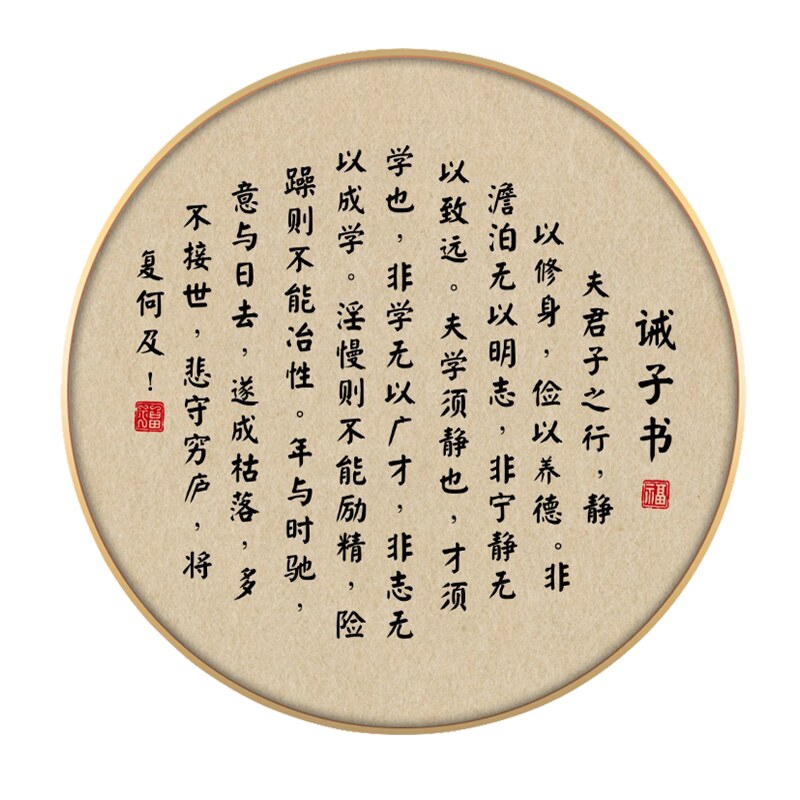 诫子书
福
夫君子之行，静
以修身，俭以养德。非
澹泊无以明志，非宁静无
以致远。夫学须静也，才须
学也，非学无以广才，非志无
以成学。淫慢则不能励精，险
躁则不能冶性。年与时驰，
意与日去，遂成枯落，多
不接世，悲守穷庐，将
复何及！
福